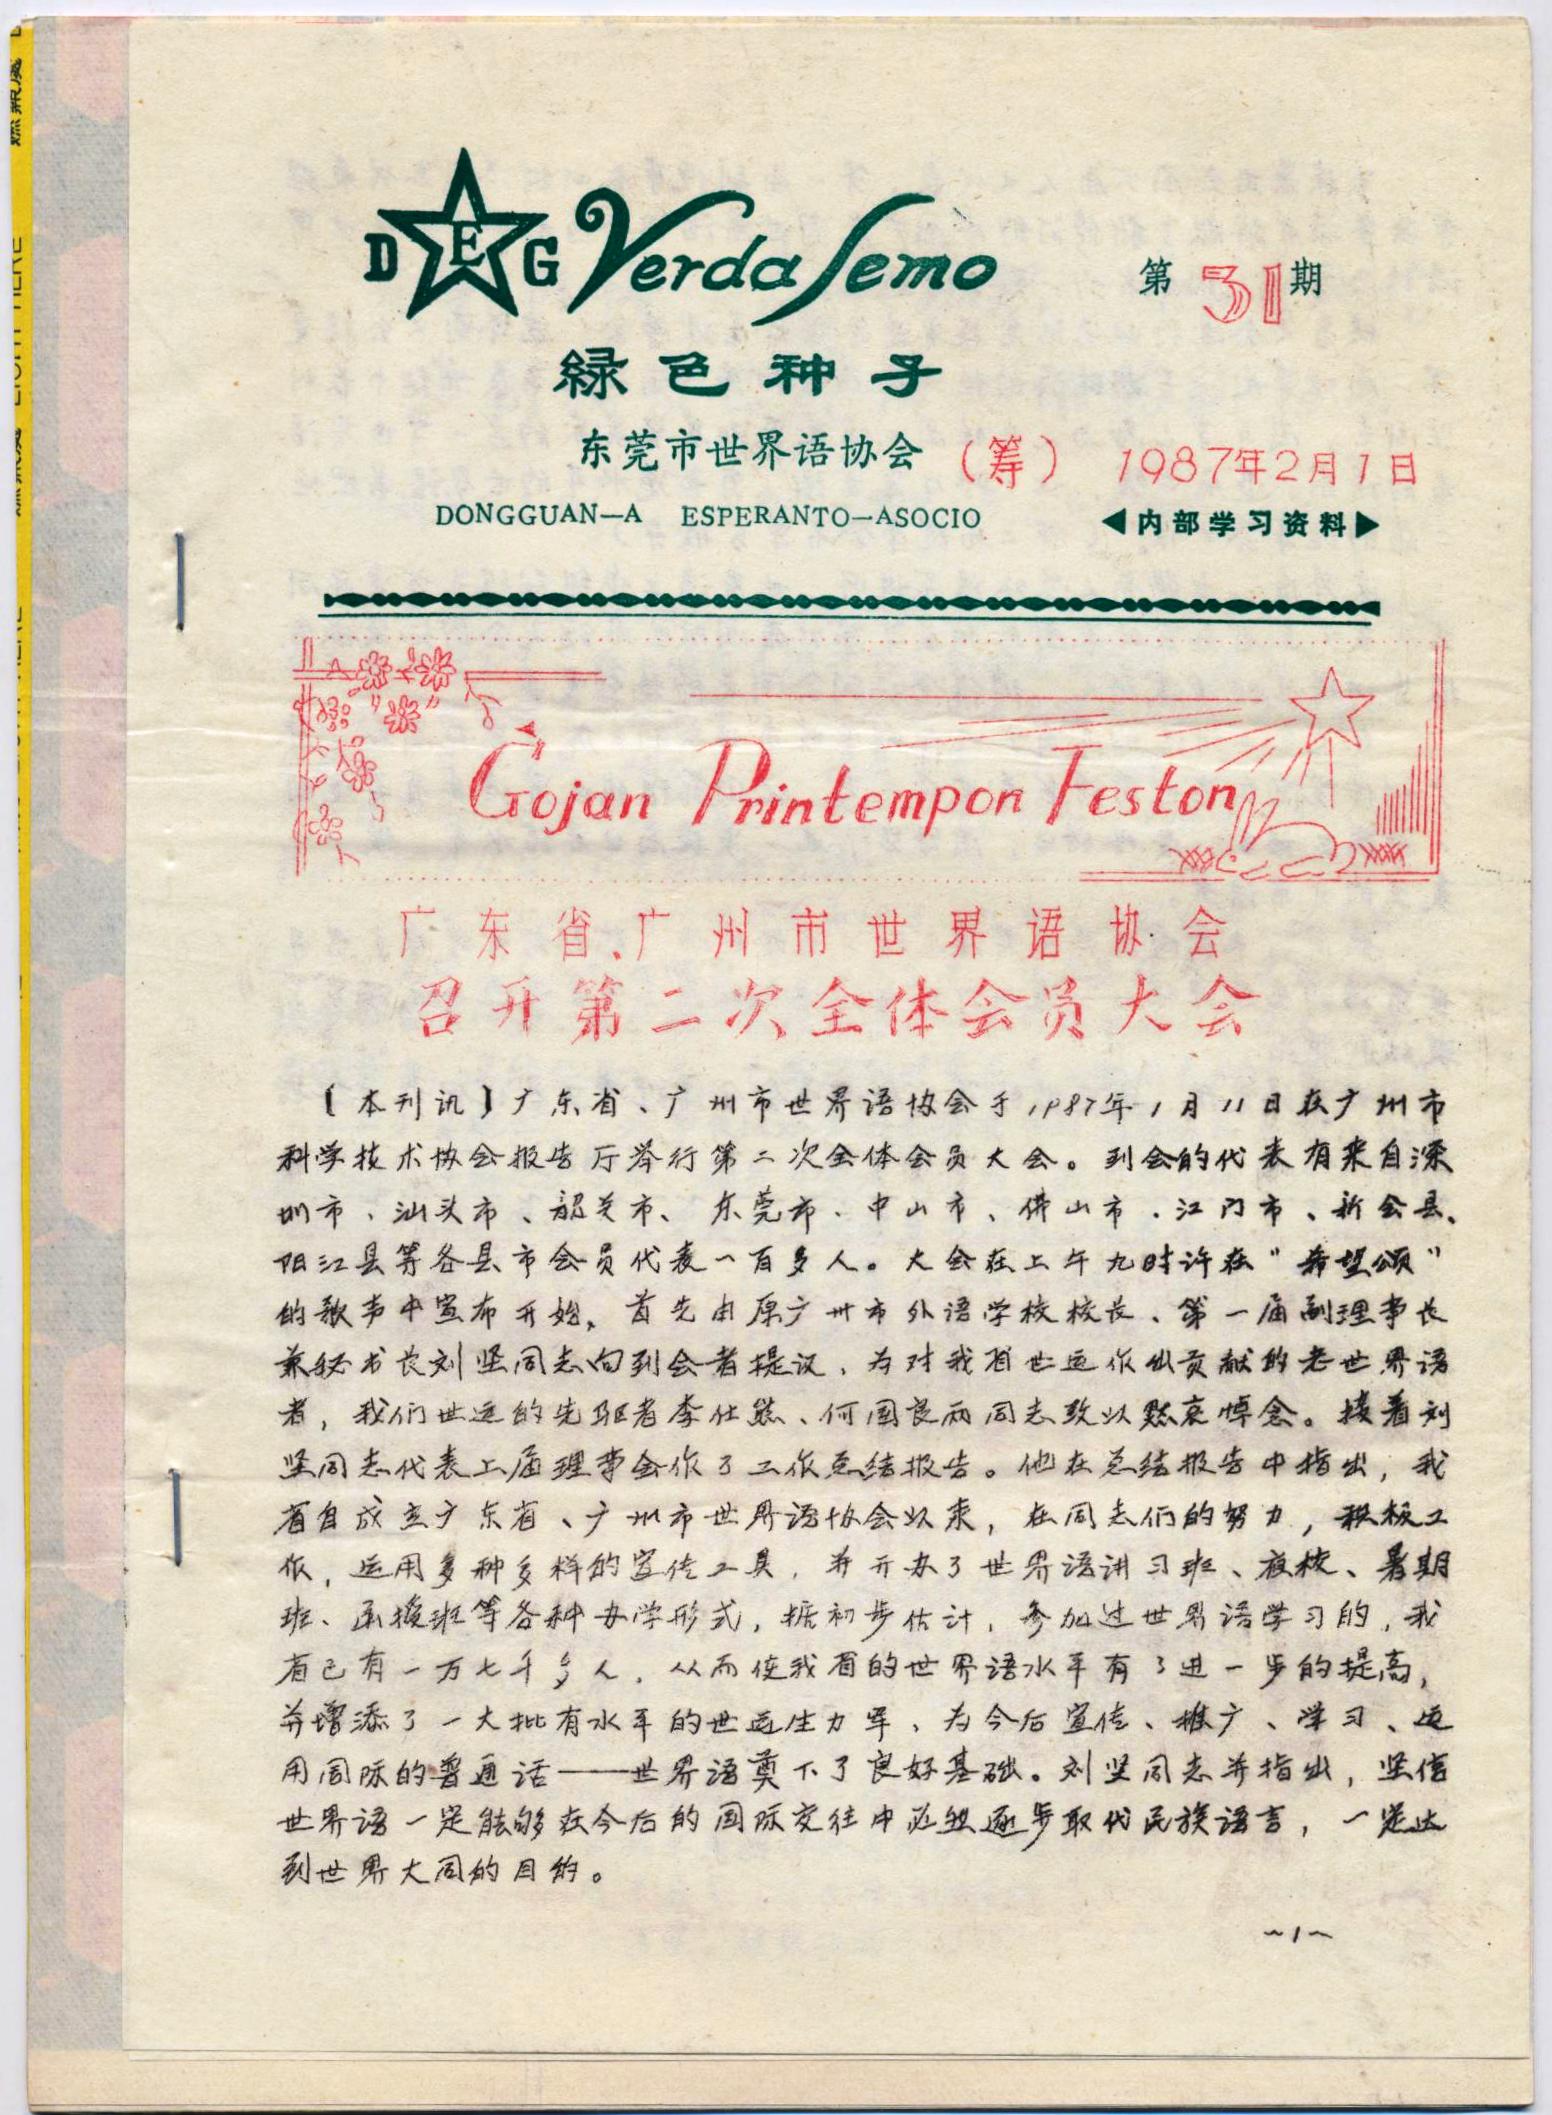 D E G Verda Semo
第31期
緑色种子
东莞市世界语协会(筹) 1987年2月1日
DONGGUAN—A ESPERANTO—ASOCIO
◀内部学习资料▶
Ĝojan Printempon Feston
广东省、广州市世界语协会
召开第二次全体会员大会
〔本刊讯〕广东省、广州市世界语协会于1987年1月11日在广州市
科学技术协会报告厅举行第二次全体会员大会。到会的代表有来自深
圳市、汕头市、韶关市、东莞市、中山市、佛山市、江门市、新会县、
阳江县等各县市会员代表一百多人。大会在上午九时许在“希望颂”
的歌声中宣布开始，首先由原广州市外语学校校长、第一届副理事长
兼秘书长刘坚同志向到会者提议，为对我省世运作出贡献的老世界语
者，我们世运的先驱者李仕熊、何国良两同志致以默哀悼念。接着刘
坚同志代表上届理事会作了工作总结报告。他在总结报告中指出，我
省自成立广东省、广州市世界语协会以来，在同志们的努力，积极工
作，运用多种多样的宣传工具，并开办了世界语讲习班、夜校、暑期
班、函授班等各种办学形式，据初步估计，参加过世界语学习的，我
省已有一万七千多人，从而使我省的世界语水平有了进一步的提高，
并增添了一大批有水平的世运生力军，为今后宣传、推广、学习、运
用国际的普通话——世界语奠下了良好基础。刘坚同志并指出，坚信
世界语一定能够在今后的国际交往中必然逐步取代民族语言，一定达
到世界大同的目的。
~1~